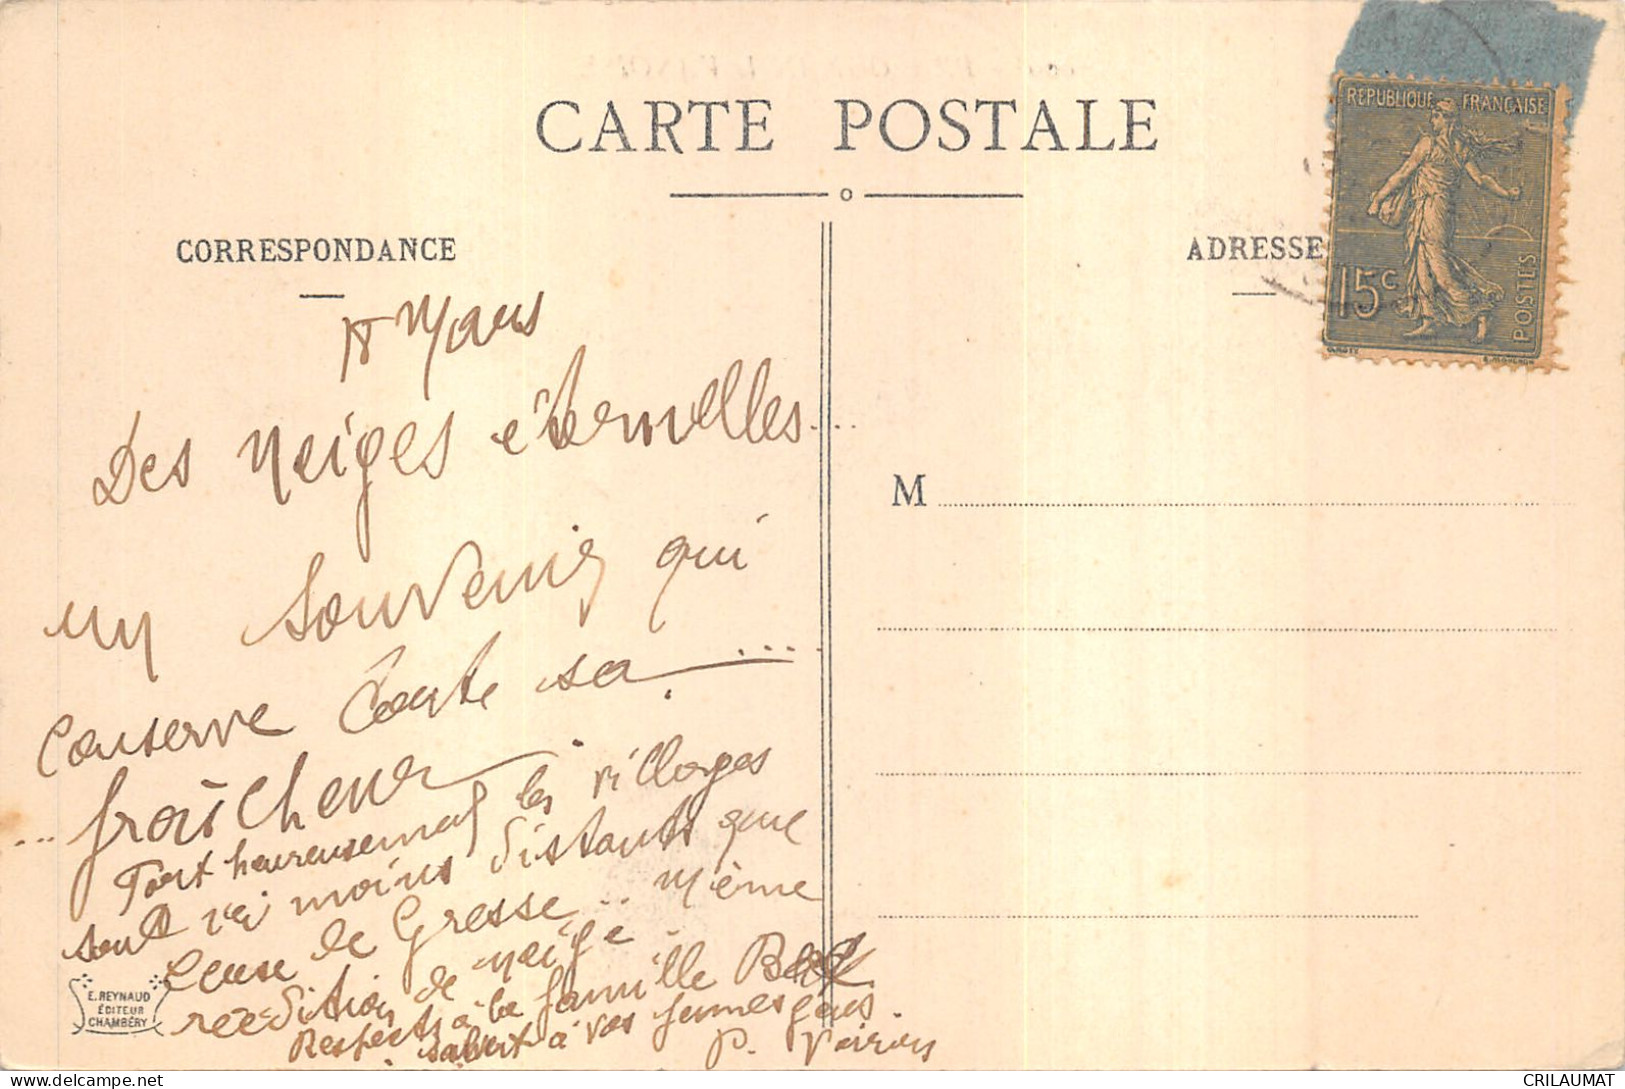 CARTE POSTALE
CORRESPONDANCE
ADRESSE
REPUBLIQUE FRANÇAISE
15c
POSTES
Mars
Des neiges éternelles....
un souvenir qui
conserve toute sa ....
... fraîcheur
Fort heureusement les villages
sont ici moins distants que
ceux de Gresse... Même
réédition de neige.
Respects à la famille
à vos jeunes gens.
P. Voiron
M
E. REYNAUD
ÉDITEUR
CHAMBÉRY
CRILAUMAT